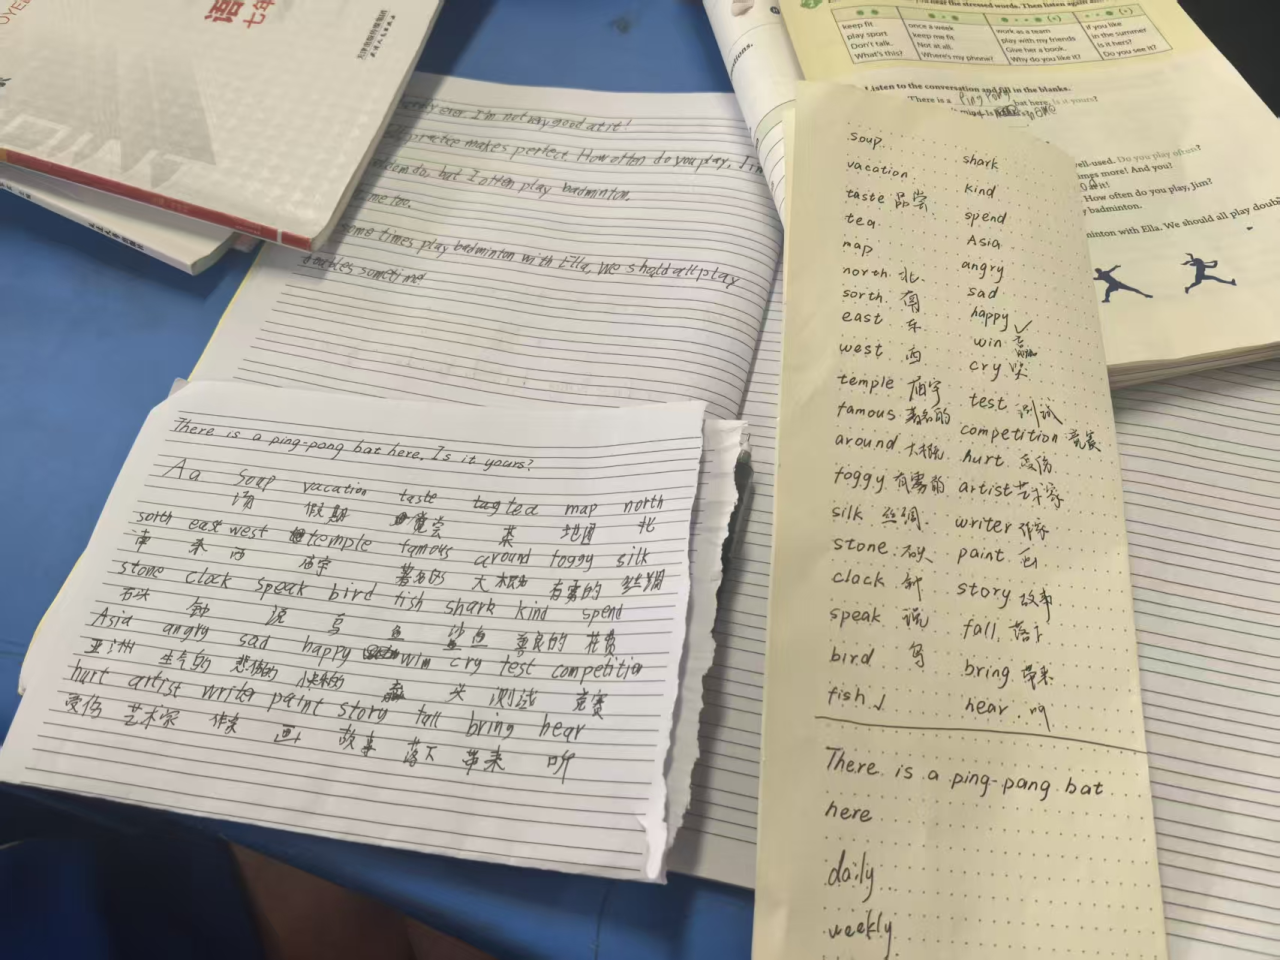 语
七年
keep fit
play sport
Don't talk.
What's this?
once a week
keep me fit
Not at all.
Where's my phone?
work as a team
play with my friends
Give her a book.
Why do you like it?
if you like
in the summer
Is it hers?
Do you see it?
Listen to the conversation and fill in the blanks.
There is a ping pong bat here. Is it yours?
well-used. Do you play often?
times more! And you?
at it!
How often do you play, Jim?
badminton.
minton with Ella. We should all play doub
ever. I'm not very good at it!
practice makes perfect. How often do you play, Jim
do, but I often play badminton.
me too.
some times play badminton with Ella. We should all play
doubles sometime
There is a ping-pong bat here. Is it yours?
Aa soup vacation taste tea map north
汤 假期 尝 茶 地图 北
sorth east west temple famous around foggy silk
南 东 西 庙宇 著名的 大概 有雾的 丝绸
stone clock speak bird fish shark kind spend
石头 钟 说 鸟 鱼 鲨鱼 善良的 花费
Asia angry sad happy win cry test competition
亚洲 生气的 悲伤的 测试 竞赛
hurt artist writer paint story fall bring hear
受伤 艺术家 作家 画 故事 落下 带来 听
soup shark
vacation kind
taste 品尝 spend
tea Asia
map angry
north 北 sad
sorth 南 happy ✓
east 东 win
west 西 cry 哭
temple 庙宇 test 测试
famous 著名的 competition 竞赛
around 大概 hurt 受伤
foggy 有雾的 artist 艺术家
silk 丝绸 writer 作家
stone 石头 paint 画
clock 钟 story 故事
speak 说 fall 落下
bird 鸟 bring 带来
fish ✓ hear 听
There is a ping-pang bat
here
daily
weekly